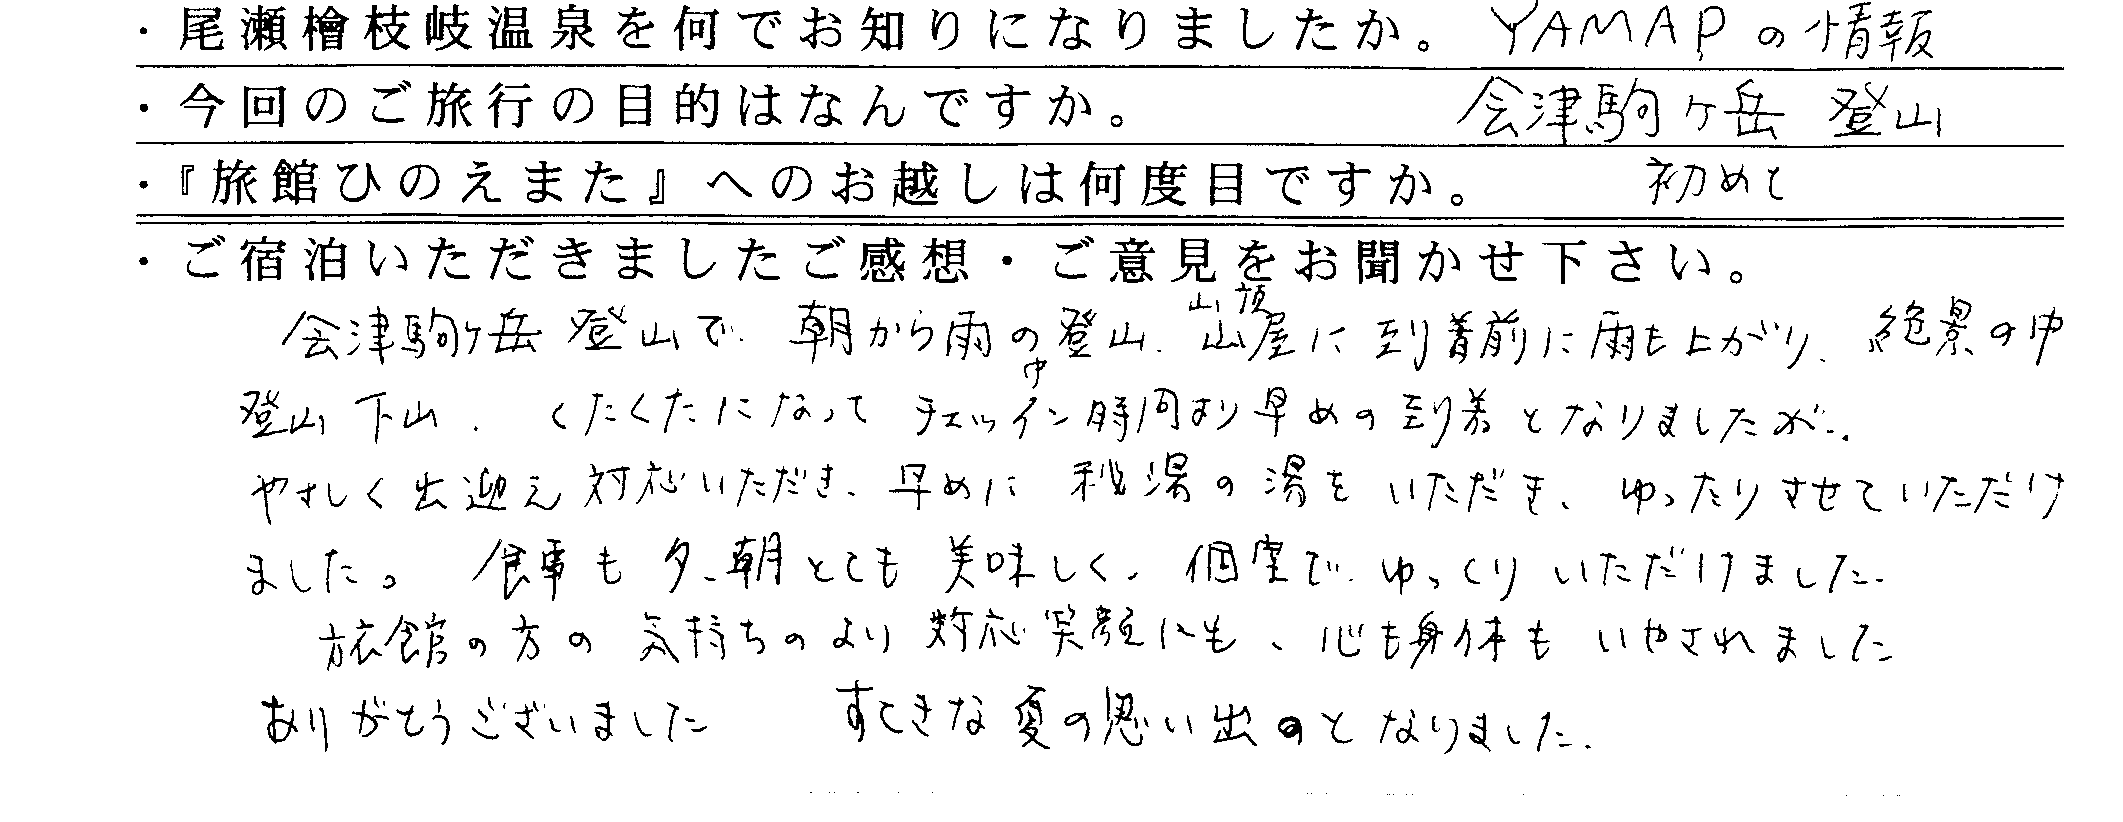 ・尾瀬檜枝岐温泉を何でお知りになりましたか。 YAMAPの情報
・今回のご旅行の目的はなんですか。 会津駒ヶ岳 登山
・『旅館ひのえまた』へのお越しは何度目ですか。 初めて
・ご宿泊いただきましたご感想・ご意見をお聞かせ下さい。
山頂
会津駒ヶ岳 登山で、朝から雨の中登山、山屋に到着前に雨も上がり、絶景の中
登山下山、くたくたになって チェックイン時間より早めの到着となりましたが、
やさしく出迎え対応いただき、早めに 秘湯の湯をいただき、ゆったりさせていただけ
ました。 食事も夕、朝とても美味しく、個室で、ゆっくりいただけました。
旅館の方の 気持ちのよい 対応 笑顔にも、心も身体も いやされました
ありがとうございました すてきな夏の思い出のとなりました。